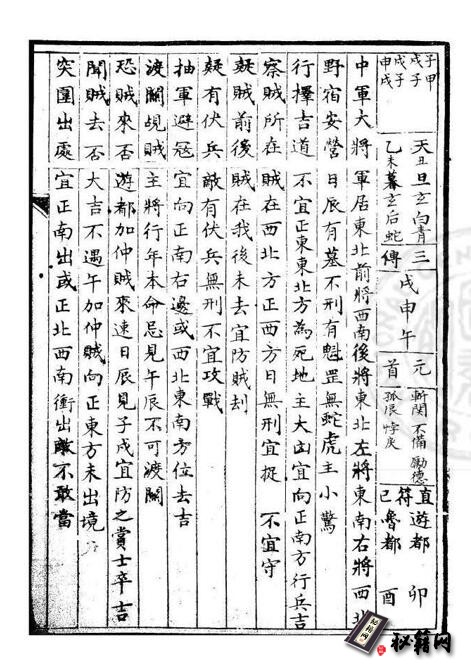 子甲
戊子
戊子
申戌
天丑旦玄白青
乙未暮玄后蛇
三傳
戌申午
元首
斬関不備勵德
孤辰悖戾
直符巳
遊都卯
魯都酉
中軍大將軍居東北前將西南後將東北左將東南右將西北
野宿安營日辰有墓不刑有魁罡無蛇虎主小驚
行擇吉道不宜正東東北方為死地主大凶宜向正南方行兵吉
察賊所在賊在西北方正西方日無刑宜捉不宜守
疑賊前後賊在我後未去宜防賊刦
疑有伏兵敵有伏兵無刑不宜攻戰
抽軍避寇宜向正南右邊或西北東南方位去吉
渡關覘賊主將行年本命忌見午辰不可渡關
恐賊來否遊都加仲賊來速日辰見子戌宜防之賞士卒吉
聞賊去否大吉不遇午加仲賊向正東方未出境
突圍出處宜正南出或正北西南衝出敵不敢當
秘籍网